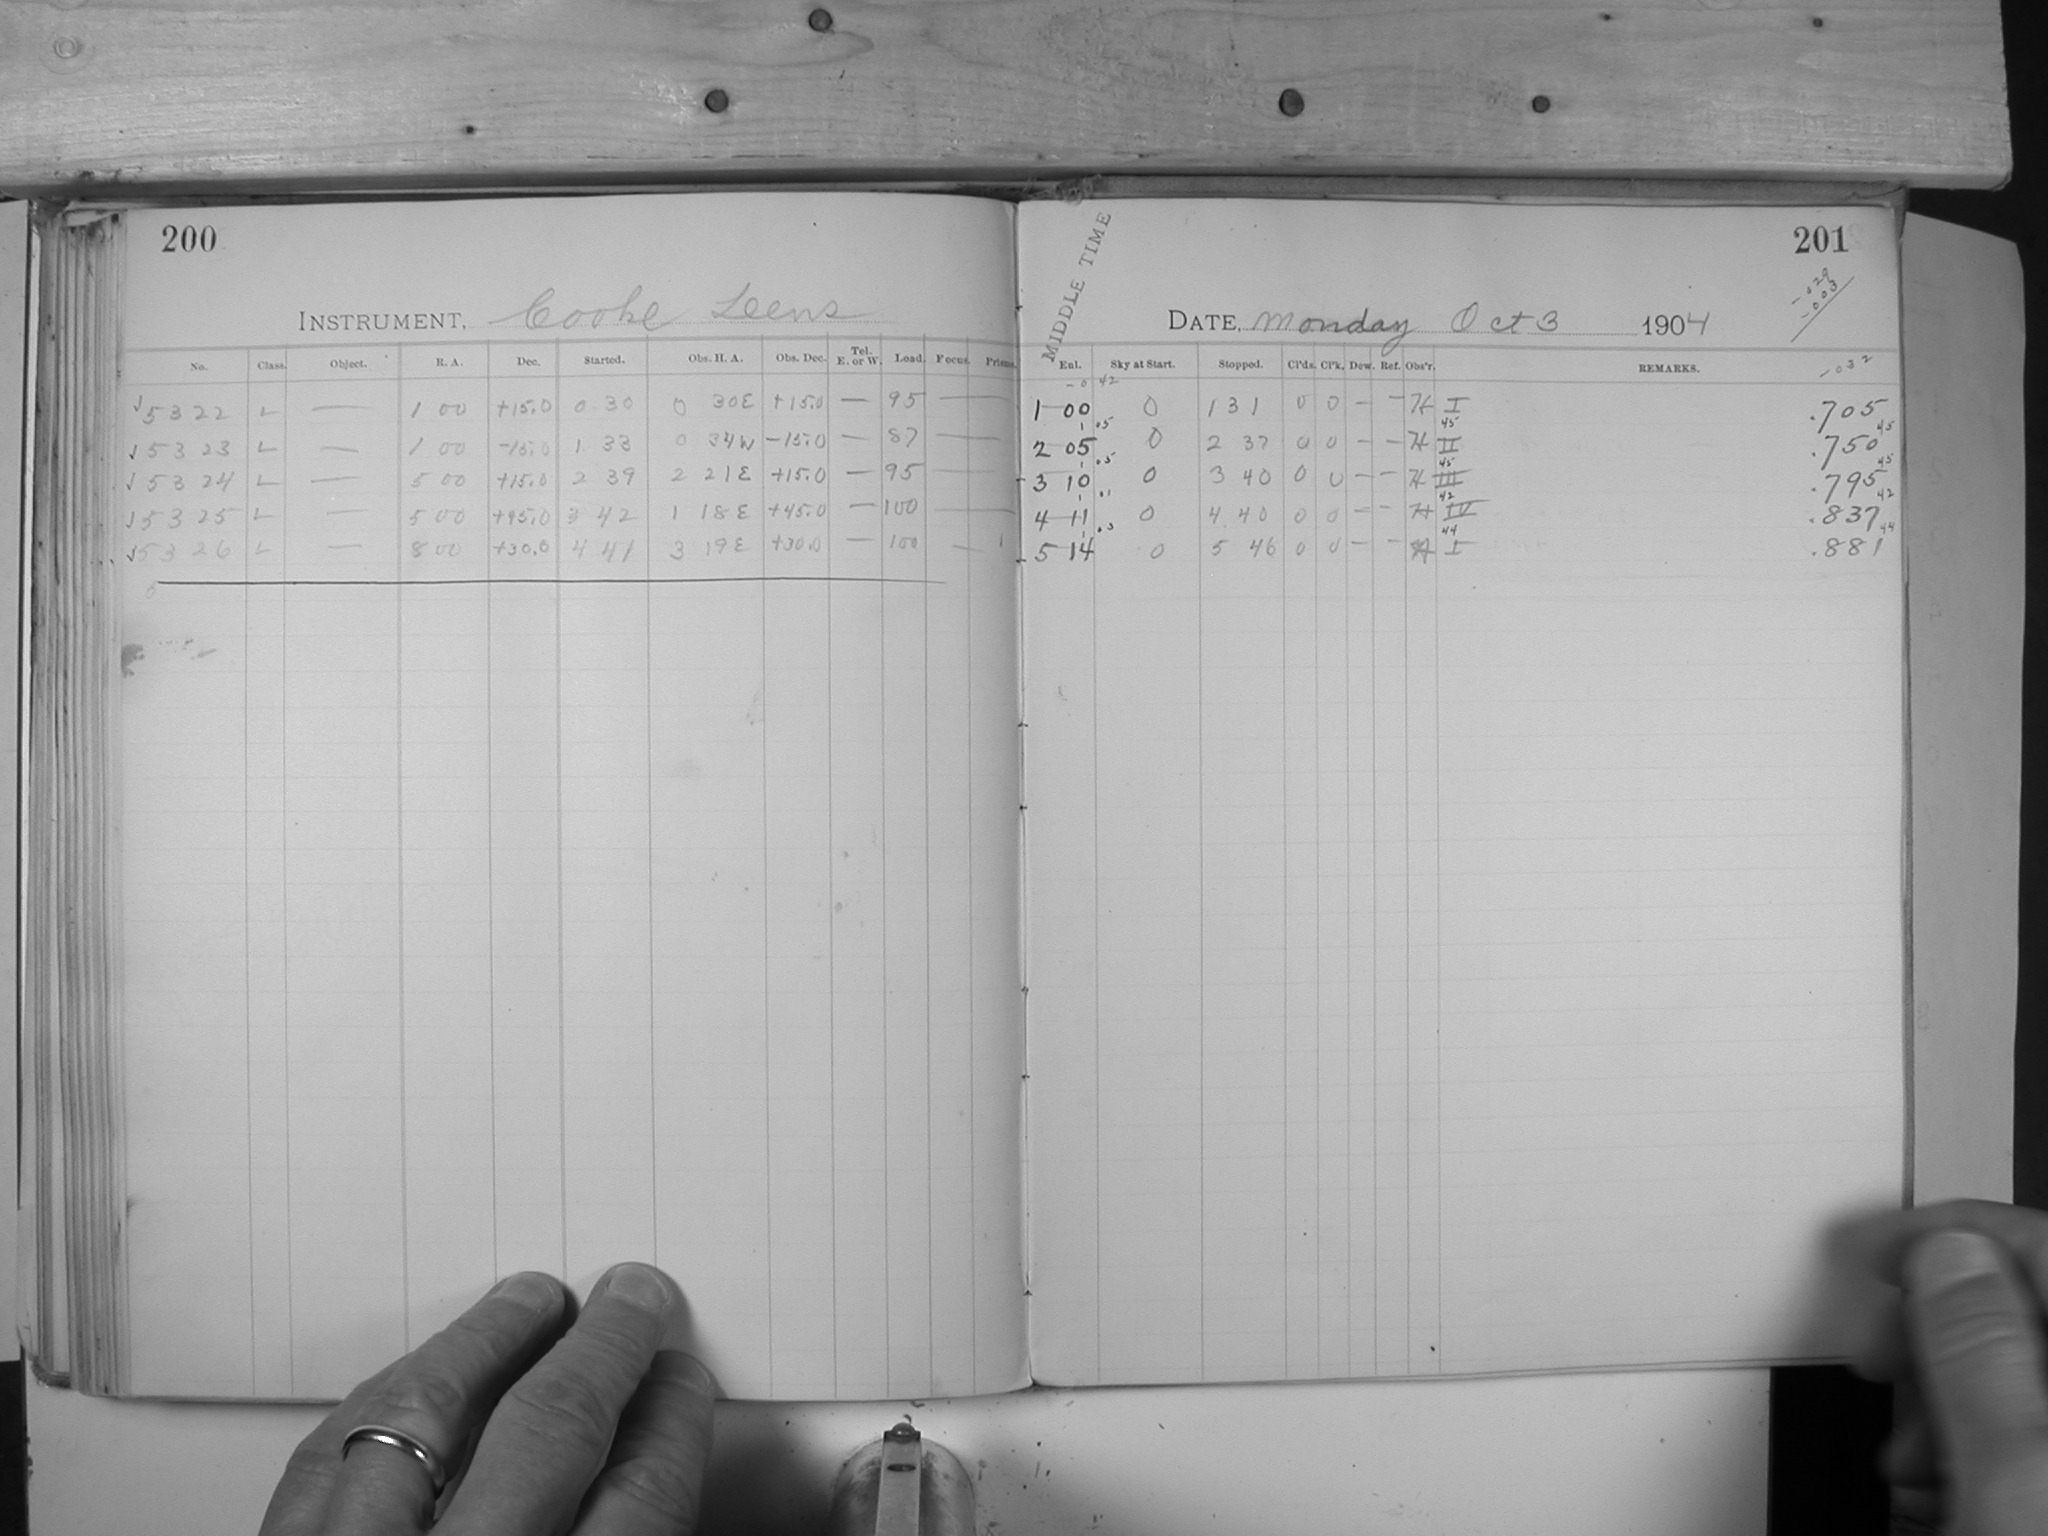 200
INSTRUMENT, Cooke Leens
No. Class. Object. R. A. Dec. Started. Obs. H. A. Obs. Dec. Tel. E. or W. Load. Focus. Prisms.
√5322 L — 1 00 +15.0 0 30 0 30E +15.0 — 95 —
√5323 L — 1 00 -15.0 1 33 0 34W -15.0 — 87 —
√5324 L — 5 00 +15.0 2 39 2 21E +15.0 — 95 —
√5325 L — 5 00 +45.0 3 42 1 18E +45.0 — 100 —
√5326 L — 8 00 +30.0 4 41 3 19E +30.0 — 100 —
201
MIDDLE TIME
-.029
-.003
DATE, Monday Oct 3 1904
-.032
Enl. Sky at Start. Stopped. Cl'ds. Cl'k. Dew. Ref. Obs'r. REMARKS.
-0 42
1 00 0 1 31 0 0 — — H I .705
1 .05 45 45
2 05 0 2 37 0 0 — — H II .750
1 .05 45 45
3 10 0 3 40 0 0 — — H III .795
1 .01 42 42
4 11 0 4 40 0 0 — — H IV .837
1 .03 44 44
5 14 0 5 46 0 0 — — H I .881